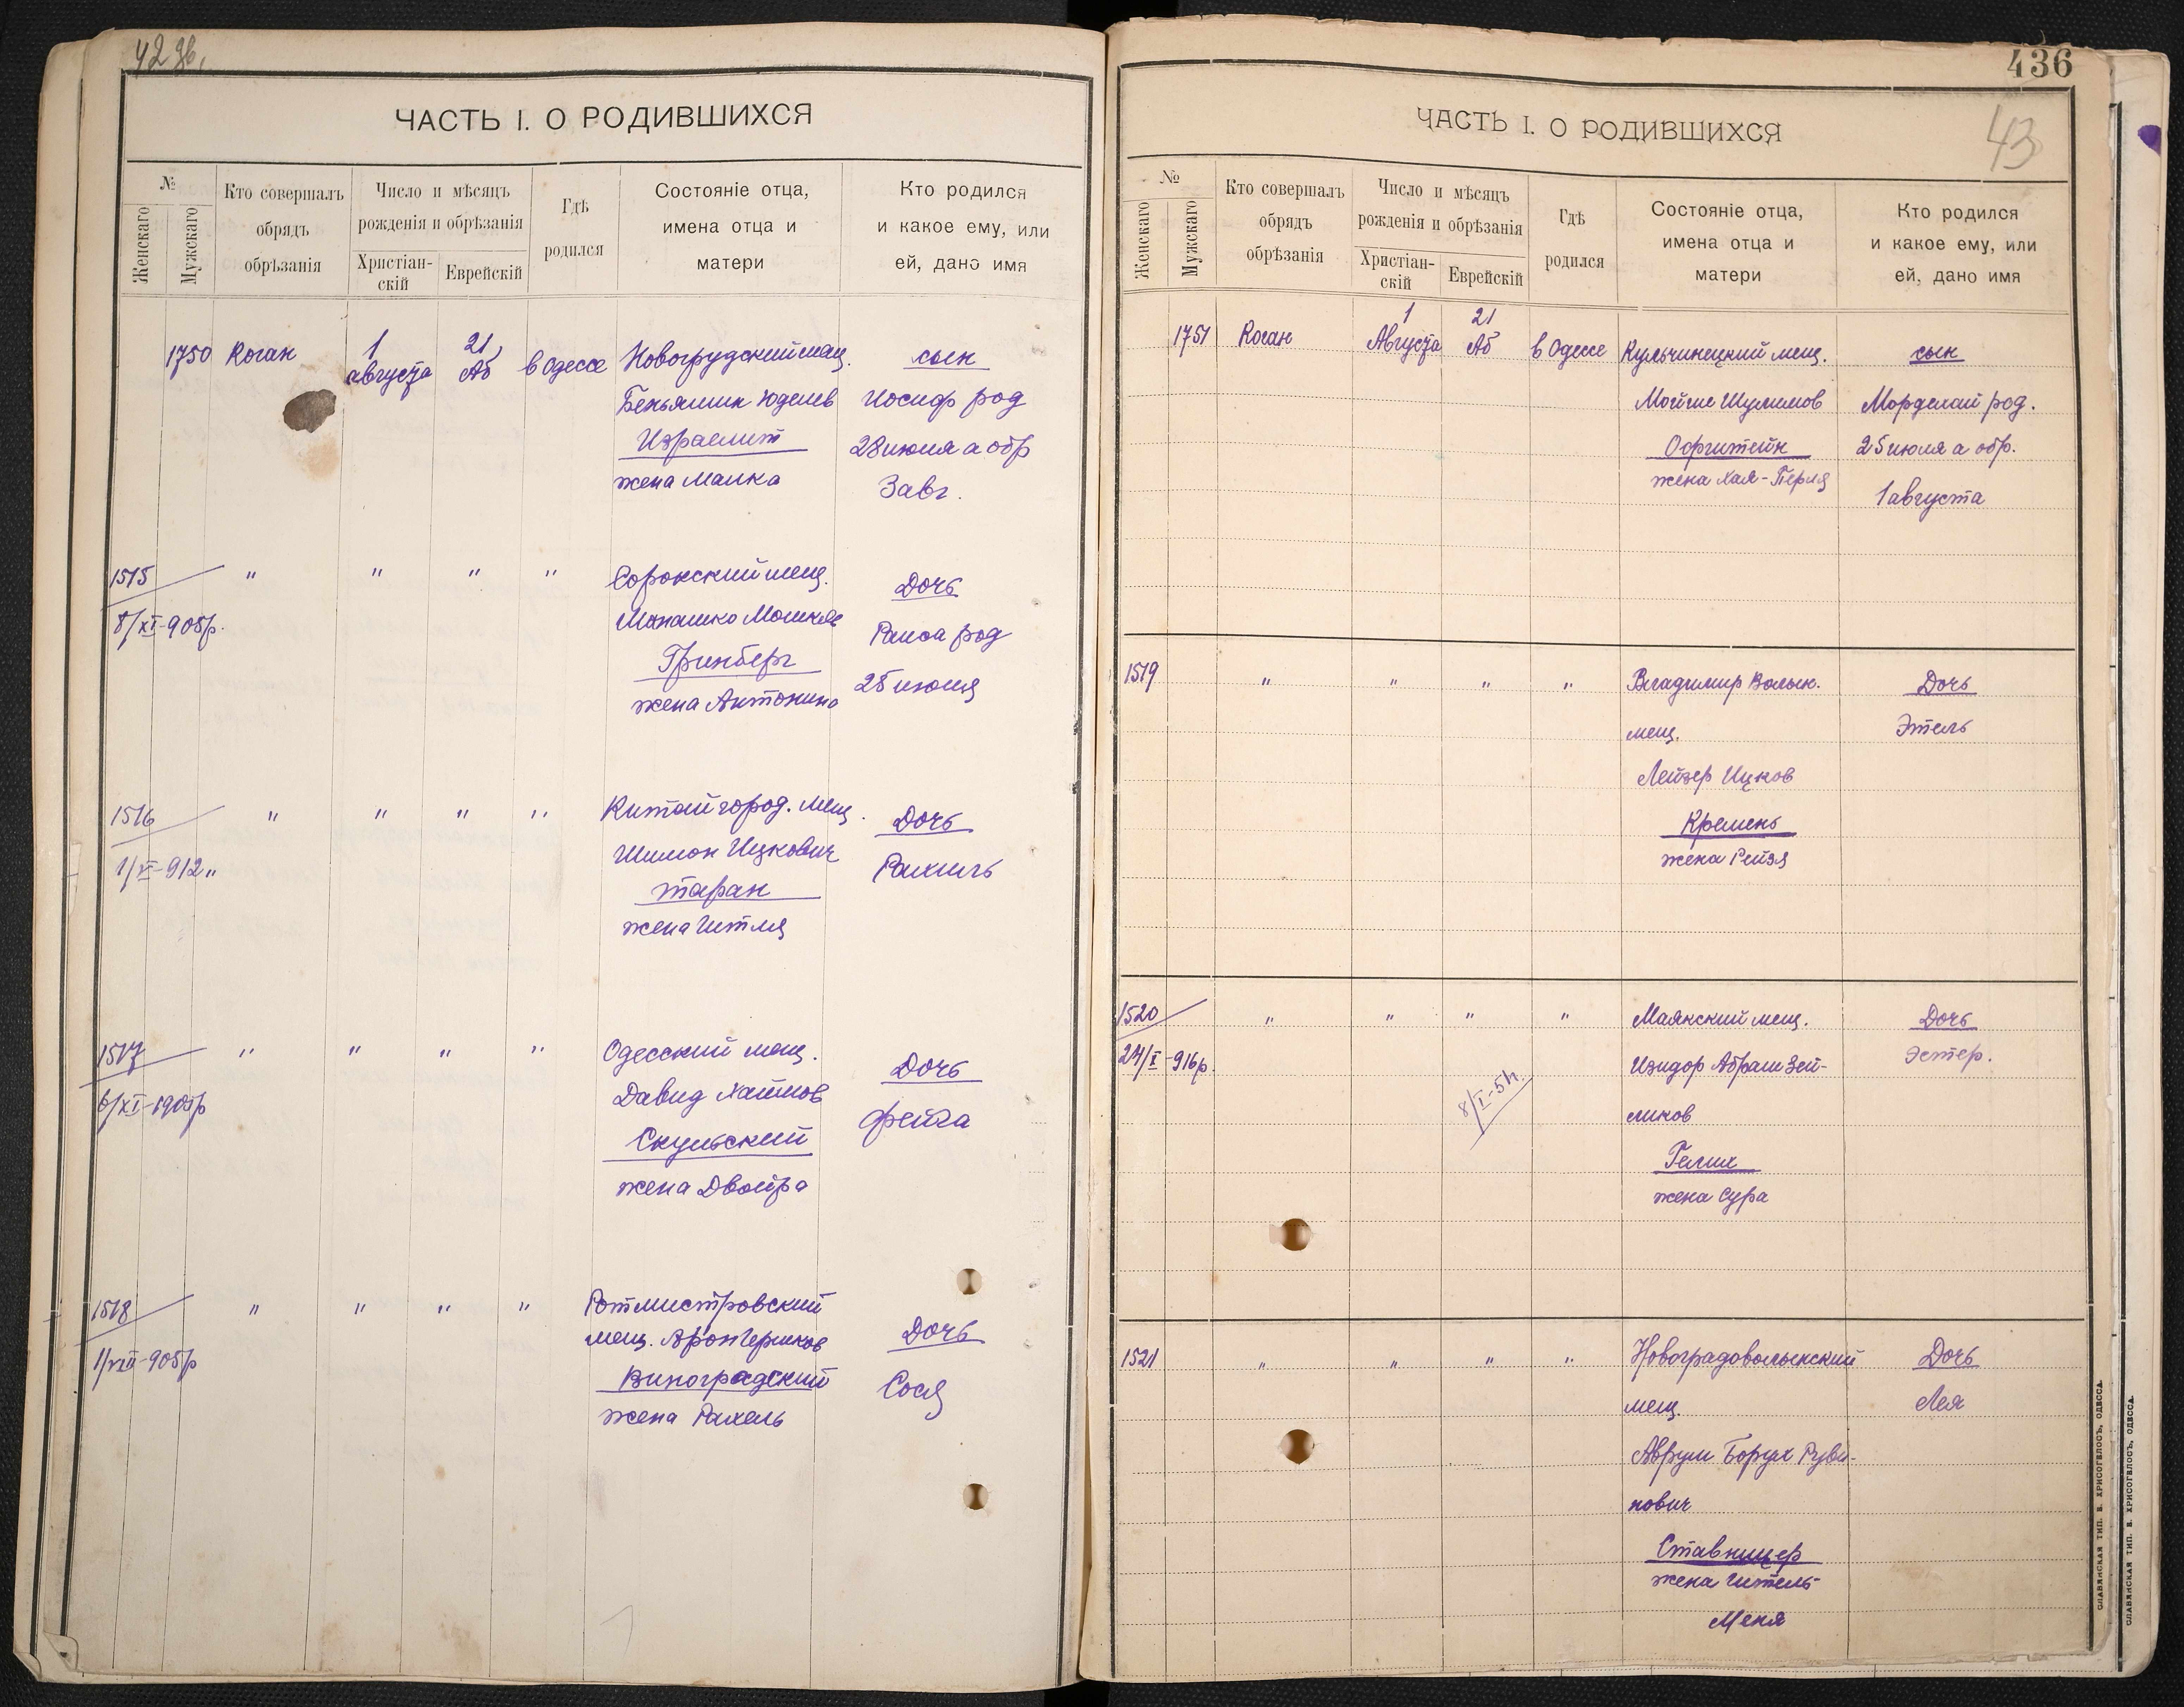 42 зв.
ЧАСТЬ I. О РОДИВШИХСЯ
№
Женскаго
Мужскаго
Кто совершалъ
обрядъ
обрѣзанія
Число и мѣсяцъ
рожденія и обрѣзанія
Христіан-
скій
Еврейскій
Гдѣ
родился
Состояніе отца,
имена отца и
матери
Кто родился
и какое ему, или
ей, дано имя
1750 Коган 1 августа 21 Аб в Одессе Новогрудский мещ. сын
Беньямин Юделев Иосиф род
Израелит 28 июля а обр
жена Малка 3 авг.
1515 " " " " Сорокский мещ. Дочь
8/XI-905р. Манашко Мошков Раиса род
Гринберг 28 июля
жена Антонина
1516 " " " " Китайгород. мещ. Дочь
1/VI-912 " Шимон Ицкович Рахиль
Таран
жена Гитля
1517 " " " " Одесский мещ. Дочь
6/XI-1905р Давид Хаимов Фейга
Скульский
жена Двойра
1518 " " " " Ротмистровский
мещ. Арон Гершков Дочь
1/VIII-905р Виноградский Сося
жена Рахель
436
43
ЧАСТЬ I. О РОДИВШИХСЯ
№
Женскаго
Мужскаго
Кто совершалъ
обрядъ
обрѣзанія
Число и мѣсяцъ
рожденія и обрѣзанія
Христіан-
скій
Еврейскій
Гдѣ
родился
Состояніе отца,
имена отца и
матери
Кто родился
и какое ему, или
ей, дано имя
1751 Коган 1 Августа 21 Аб в Одессе Кульчинецкий мещ. сын
Мойше Шулимов Мордехай род.
Офштейн 25 июля а обр.
жена Хая-Перля 1 августа
1519 " " " " Владимир Волын. Дочь
мещ. Этель
Лейзер Ицков
Кремень
жена Рейзя
1520 " " " " Маякский мещ. Дочь
24/I-916р. Изидор Абрам Зей- Эстер.
8/I-5н.
ликов
Гелих
жена Сура
1521 " " " " Новоградоволынский Дочь
мещ. Лея
Аврум Борух Руви-
нович
Ставницер
жена Гитель-
Меня
СЛАВЯНСКАЯ ТИП. Е. ХРИСОГЕЛОСЪ, ОДЕССА.
СЛАВЯНСКАЯ ТИП. Е. ХРИСОГЕЛОСЪ, ОДЕССА.